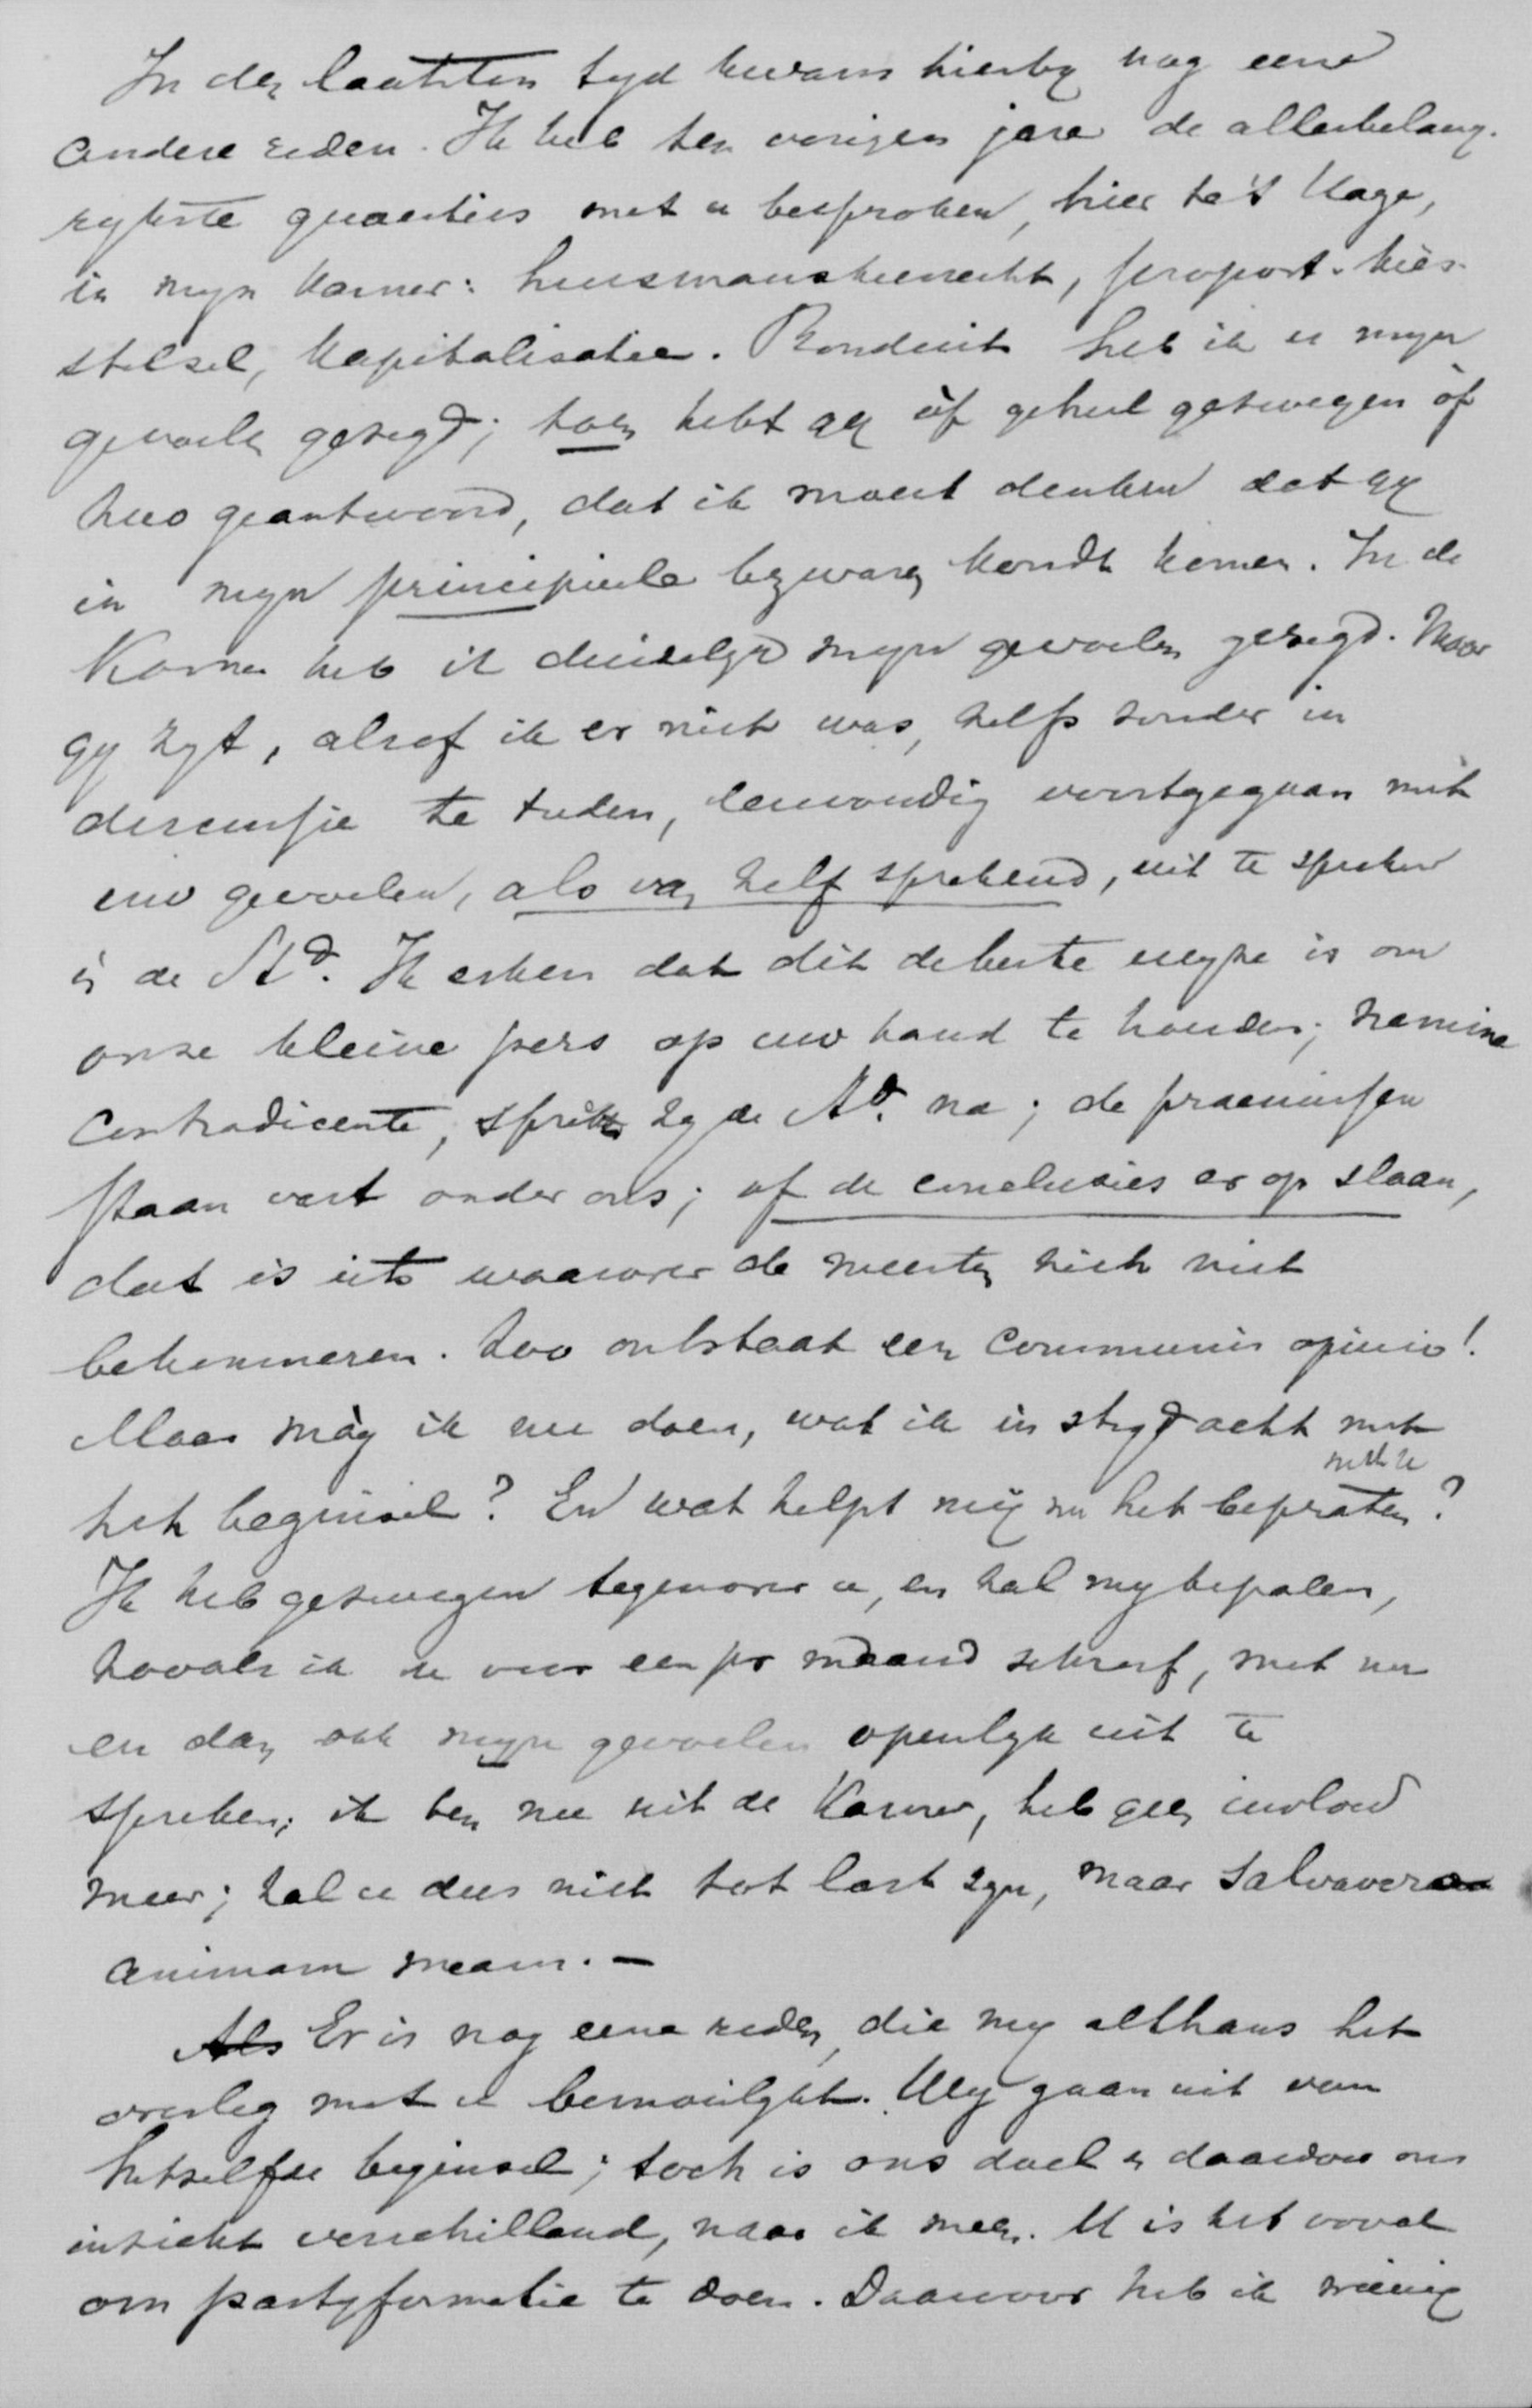 In den laatsten tyd kwam hierby nog eene
andere reden. Ik heb ten vorigen jare de allerbelang-
rykste quaesties met u besproken, hier te 's Hage,
in myn kamer: huismanskiesrecht, proport. kies-
stelsel, kapitalisatie. Ronduit heb ik u myn
gevoelen gezegd; toen hebt gy òf geheel gezwegen òf
hoogst geantwoord, dat ik moest denken dat gy
in myn principieele bezwaren kondt komen. In de
Kamer heb ik duidelyk myn gevoelen gezegd. Maar
gy zyt, alsof ik er niet was, zelfs zonder in
discussie te treden, eenvoudig voortgegaan met
uw gevoelen, als van zelf sprekend, uit te spreken
in de Std. Ik erken dat dit de beste wyze is om
onze kleine pers op uw hand te houden; nemine
contradicente, spreekt zy de Std. na; de praemissen
staan vast onder ons; of de conclusies er op slaan,
dat is iets waarover de meesten zich niet
bekommeren. Zoo ontstaat een communis opinio!
Maar màg ik nu doen, wat ik in stryd acht met
het beginsel? En wat helpt mij nu het bepraten met u?
Ik heb gezwegen tegenover u, en zal my bepalen,
zooals ik u voor een pr maand schreef, met nu
en dan ook myn gevoelen openlyk uit te
spreken; ik ben nu uit de Kamer, heb geen invloed
meer; zal u dus niet tot last zyn, maar salvavero
animam meam. —
Als Er is nog eene reden, die my althans het
overleg met u bemoeilykt. Wy gaan uit van
hetzelfde beginsel; toch is ons doel en daardoor ons
inzicht verschillend, naar ik meen. U is het vooral
om partyformatie te doen. Daarvoor heb ik weinig